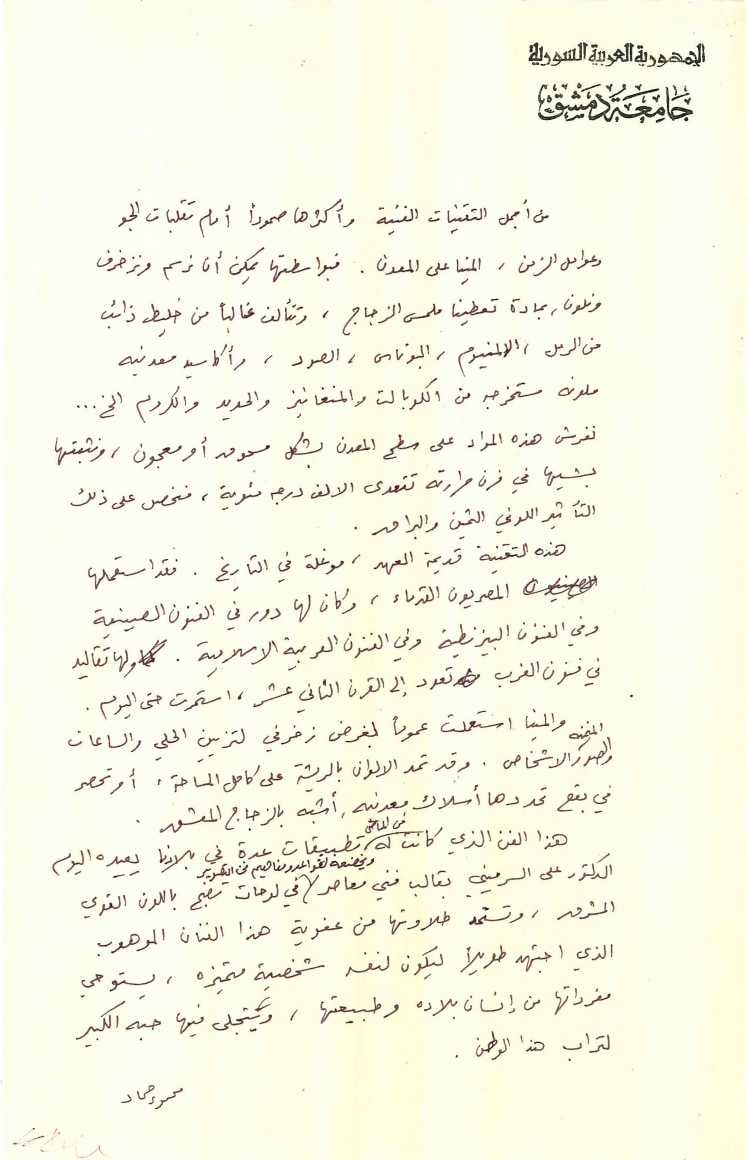 الجمهورية العربية السورية
جامعة دمشق
من أجمل التقنيات الفنية وأكثرها صموداً أمام تقلبات الجو
وعوامل الزمن ، المينا على المعدن . فبواسطتها يمكن أن نرسم ونزخرف
ونلون بمادة تعطينا ملمس الزجاج ، وتتألف غالباً من خليط ذائب
من الرمل ، الالمنيوم ، البوتاس ، الصود ، وأكاسيد معدنية
ملونه مستخرجه من الكوبالت والمنغانيز والحديد والكروم الخ ...
نفرش هذه المواد على سطح المعدن بشكل مسحوق أو معجون ، ونثبتها
بشيها في فرن حرارته تتعدى الالف درجه مئوية ، فنحصل على ذلك
التأثير اللوني الثمين والبراق .
هذه التقنية قديمة العهد ، موغلة في التاريخ . فقد استعملها
المصريون القدماء ، وكان لها دور في الفنون الصينية
وفي الفنون البيزنطية وفي الفنون العربية الاسلامية . ولها تقاليد
في فنون الغرب تعود إلى القرن الثاني عشر ، استمرت حتى اليوم .
والمينا استعملت عموماً لغرض زخرفي لتزيين الحلي والساعات
والصور المنمنمه الاشخاص . وقد تمد الالوان بالريشة على كامل المساحة ، أو تحصر
في بقع تحددها أسلاك معدنيه ، أشبه بالزجاج المعشق .
هذا الفن الذي كانت له في الماضي تطبيقات عدة في بلادنا يعيده اليوم
الدكتور علي السرميني بقالب فني معاصر ويخضعه لقواعد ومفاهيم فن التصوير في لوحات تضج باللون القوي
المشرق ، وتستمد طلاوتها من عفوية هذا الفنان الموهوب
الذي اجتهد طويلاً ليكون لنفسه شخصية متميزه ، يستوحي
مفرداتها من إنسان بلاده وطبيعتها ، ويتجلى فيها حبه الكبير
لتراب هذا الوطن .
محمود حماد